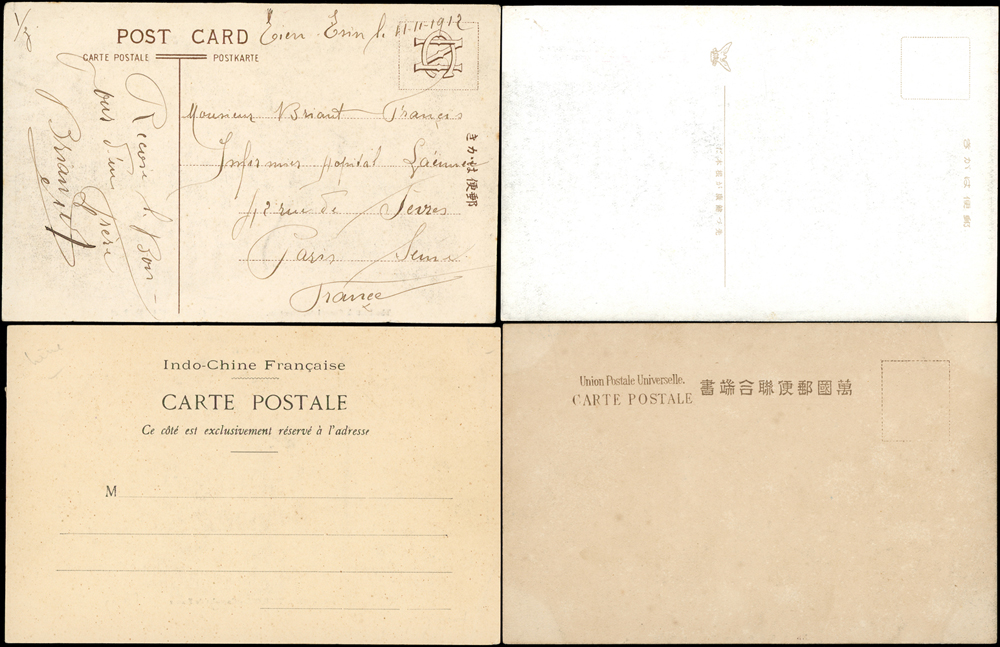 1/30
POST CARD
Tien-Tsin le 11-11-1912
CARTE POSTALE
POSTKARTE
Reçois le Bon-
jour d'un
Frère
Briant
Monsieur Briant François
Infirmier hôpital Laënnec
42 rue de Sèvres
Paris Seine
France
きかは便郵
きかは便郵
Indo-Chine Française
CARTE POSTALE
Ce côté est exclusivement réservé à l'adresse
M
Union Postale Universelle.
CARTE POSTALE
書端合聯便郵國萬